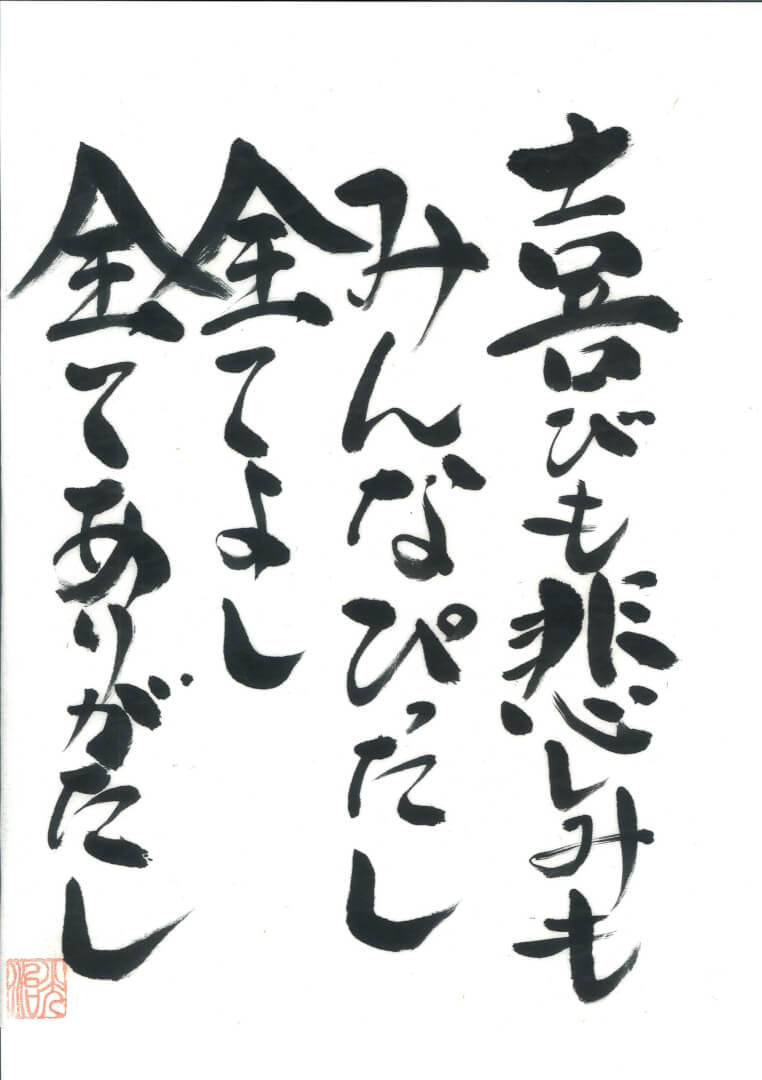 喜びも悲しみも
みんなぴったし
全てよし
全てありがたし